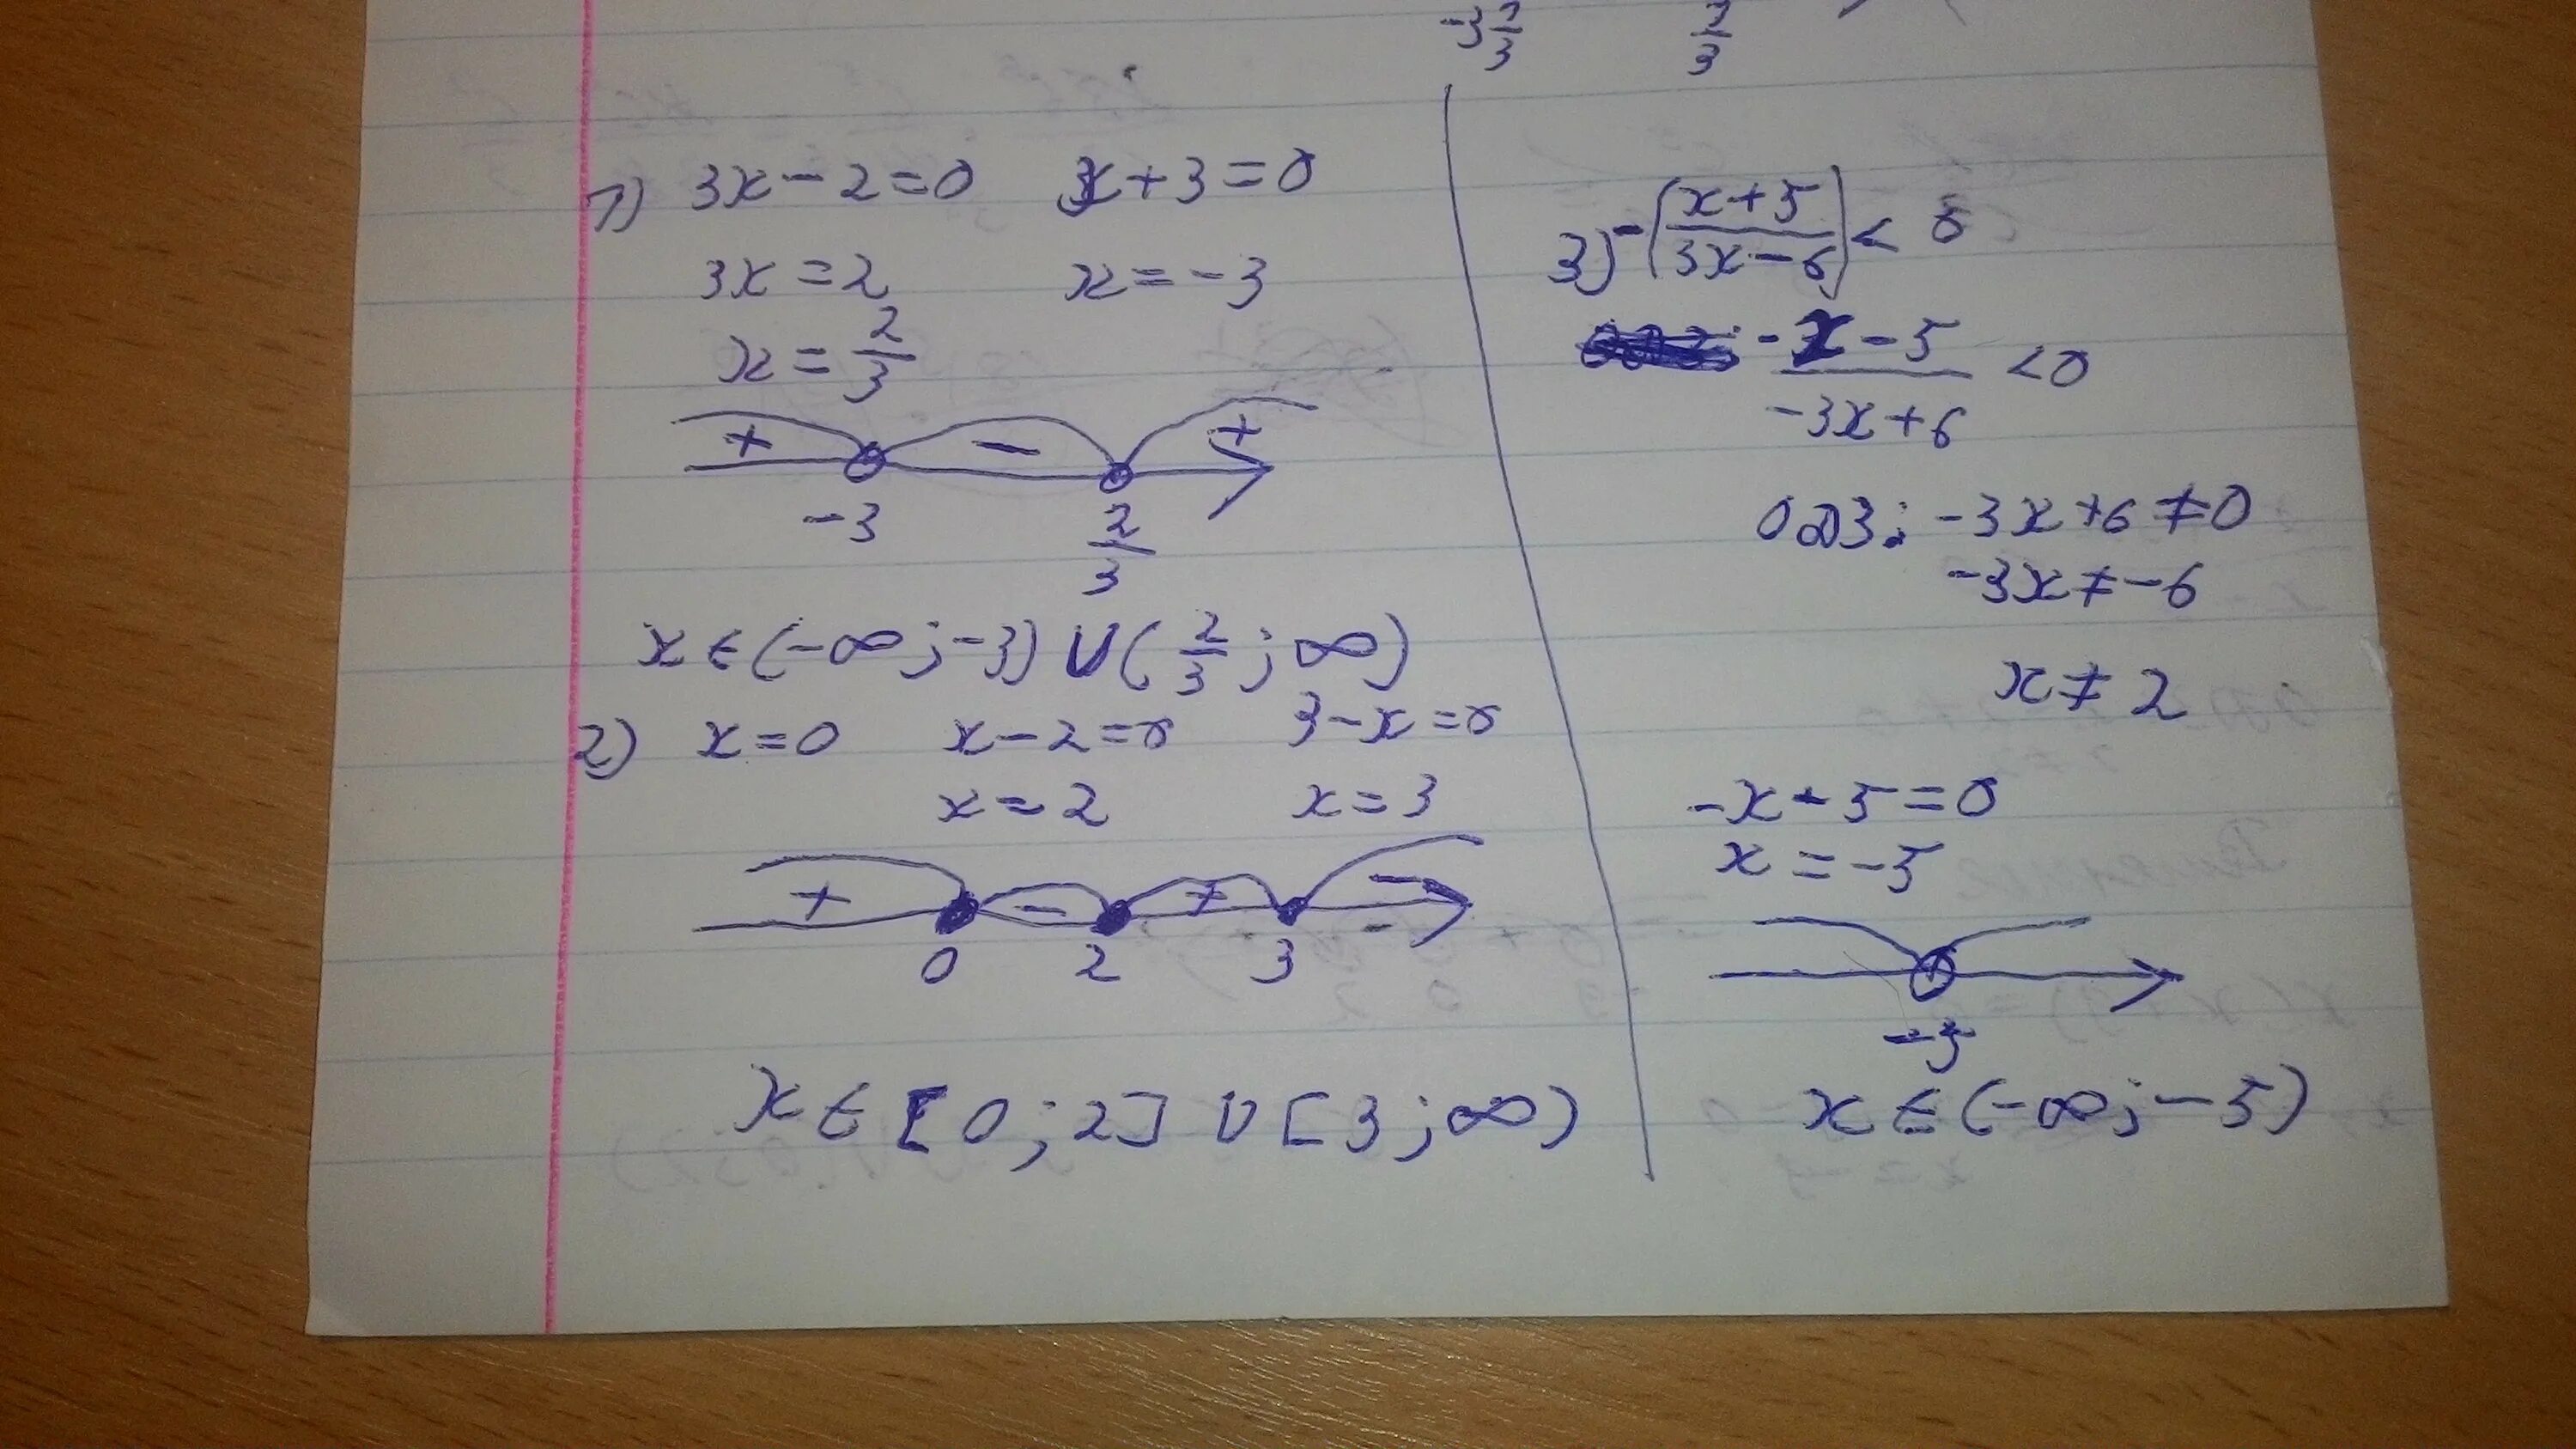 -3 2/3 2/3
1) 3x-2=0 x+3=0
3x=2 x=-3
x=2/3
+ - +
-3 2/3
x∈(-∞;-3)∪(2/3;∞)
2) x=0 x-2=0 3-x=0
x=2 x=3
+ - + -
-
0 2 3
x∈[0;2]∪[3;∞)
3) -((x+5)/(3x-6))<0
(-x-5)/(-3x+6)<0
ОДЗ: -3x+6≠0
-3x≠-6
x≠2
-x-5=0
x=-5
-5
x∈(-∞;-5)